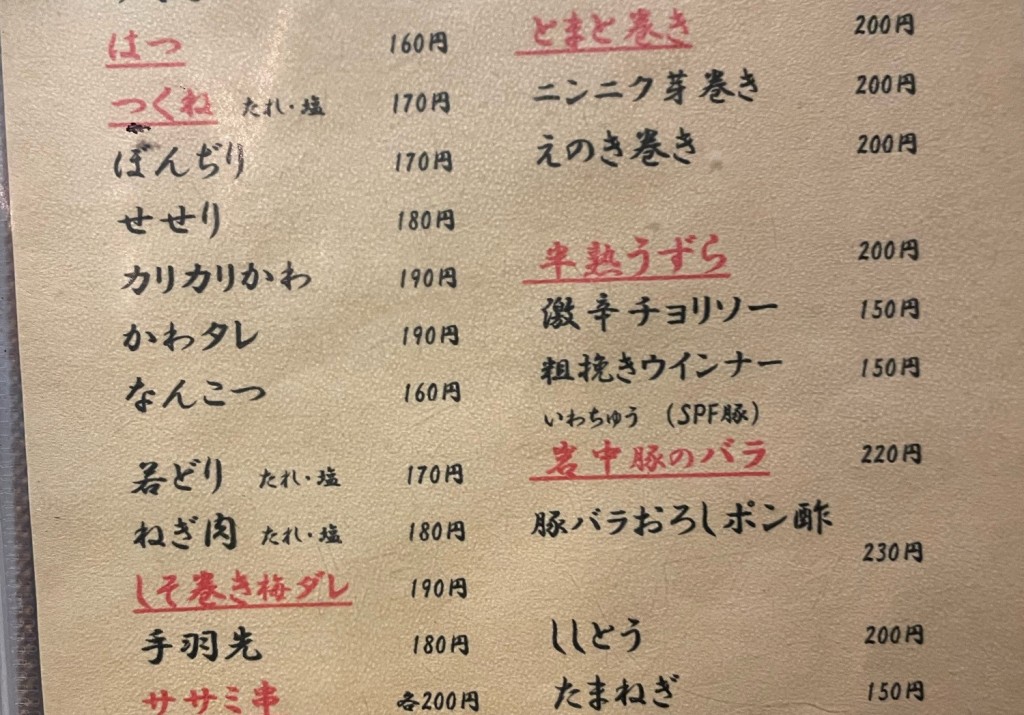 はつ 160円
つくね たれ・塩 170円
ぼんぢり 170円
せせり 180円
カリカリかわ 190円
かわタレ 190円
なんこつ 160円
若どり たれ・塩 170円
ねぎ肉 たれ・塩 180円
しそ巻き梅ダレ 190円
手羽先 180円
ササミ串 各200円
とまと巻き 200円
ニンニク芽巻き 200円
えのき巻き 200円
半熟うずら 200円
激辛チョリソー 150円
粗挽きウインナー 150円
いわちゅう (SPF豚)
岩中豚のバラ 220円
豚バラおろしポン酢
230円
ししとう 200円
たまねぎ 150円